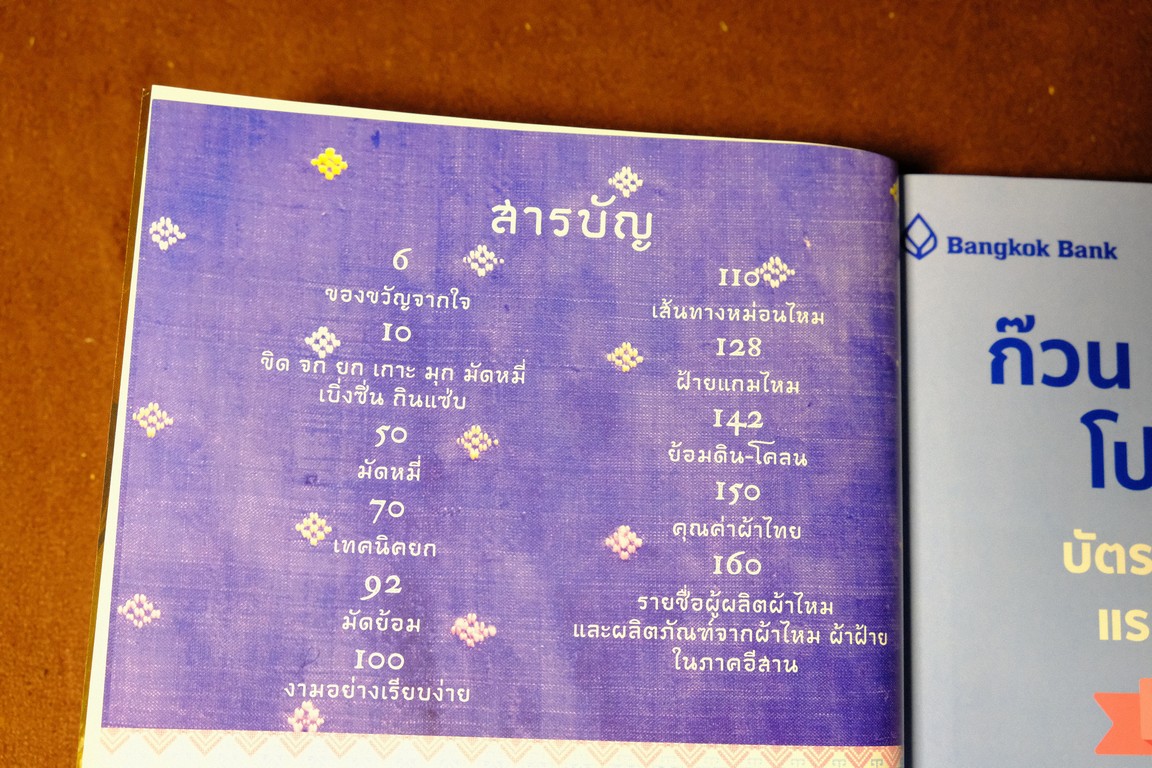 สารบัญ
6
ของขวัญจากใจ
10
ขิด จก ยก เกาะ มุก มัดหมี่
เบิ่งซิ่น ถินแซ่บ
50
มัดหมี่
70
เทคนิคยก
92
มัดย้อม
100
งามอย่างเรียบง่าย
110
เส้นทางหม่อนไหม
128
ฝ้ายแกมไหม
142
ย้อมดิน-โคลน
150
คุณค่าผ้าไทย
160
รายชื่อผู้ผลิตผ้าไหม
และผลิตภัณฑ์จากผ้าไหม ผ้าฝ้าย
ในภาคอีสาน
Bangkok Bank
ก๊วน
โป
บัตร
แร